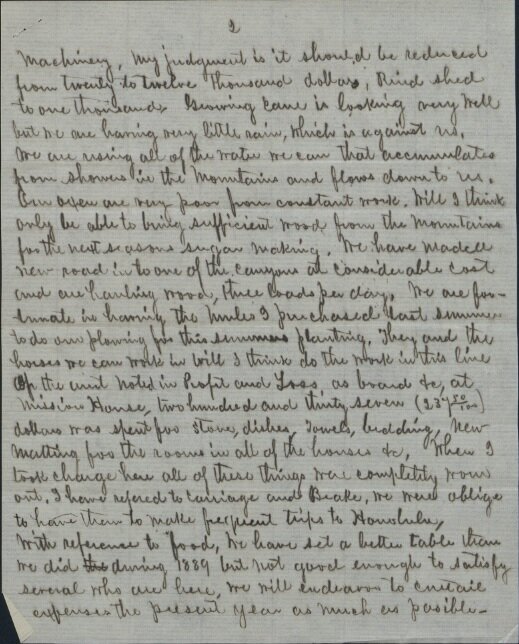 2
Machinery, My judgment is it should be reduced
from twenty to twelve thousand dollars, Rind shed
to one thousand. Growing cane is looking very well
but we are having very little rain, which is against us.
We are using all of the water we can that accumulates
from showers in the Mountains and flows down to us.
Our oxen are very poor from constant work. Will I think
only be able to bring sufficient wood from the Mountains
for the next seasons sugar making. We have made a
new road in to one of the canyons at considerable cost
and are hauling wood, three loads per day. We are for-
tunate in having the Mules I purchased last summer
to do our plowing for this summers planting. They and the
horses we can work in will I think do the work in this line
Of the amt noted in Profit and Loss as board &c, at
Mission House, two hundred and thirty seven (237 50/100)
dollars was spent for Stove, dishes, Towels, bedding, New
Matting for the rooms in all of the houses &c, When I
took charge here all of these things were completly worn
out. I have refered to Carriage and Brake, we were oblige
to have them to make frequent trips to Honolulu,
With reference to food, We have set a better table than
we did during 1889 but not good enough to satisfy
several who are here, we will endeavor to curtail
expenses the present year as much as posible-